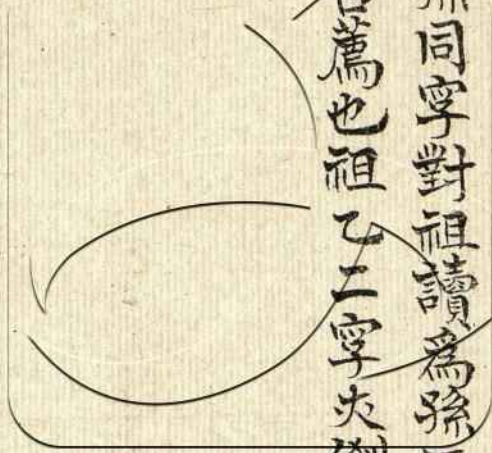 同字對祖讀為孫
薦也祖乙二字夾